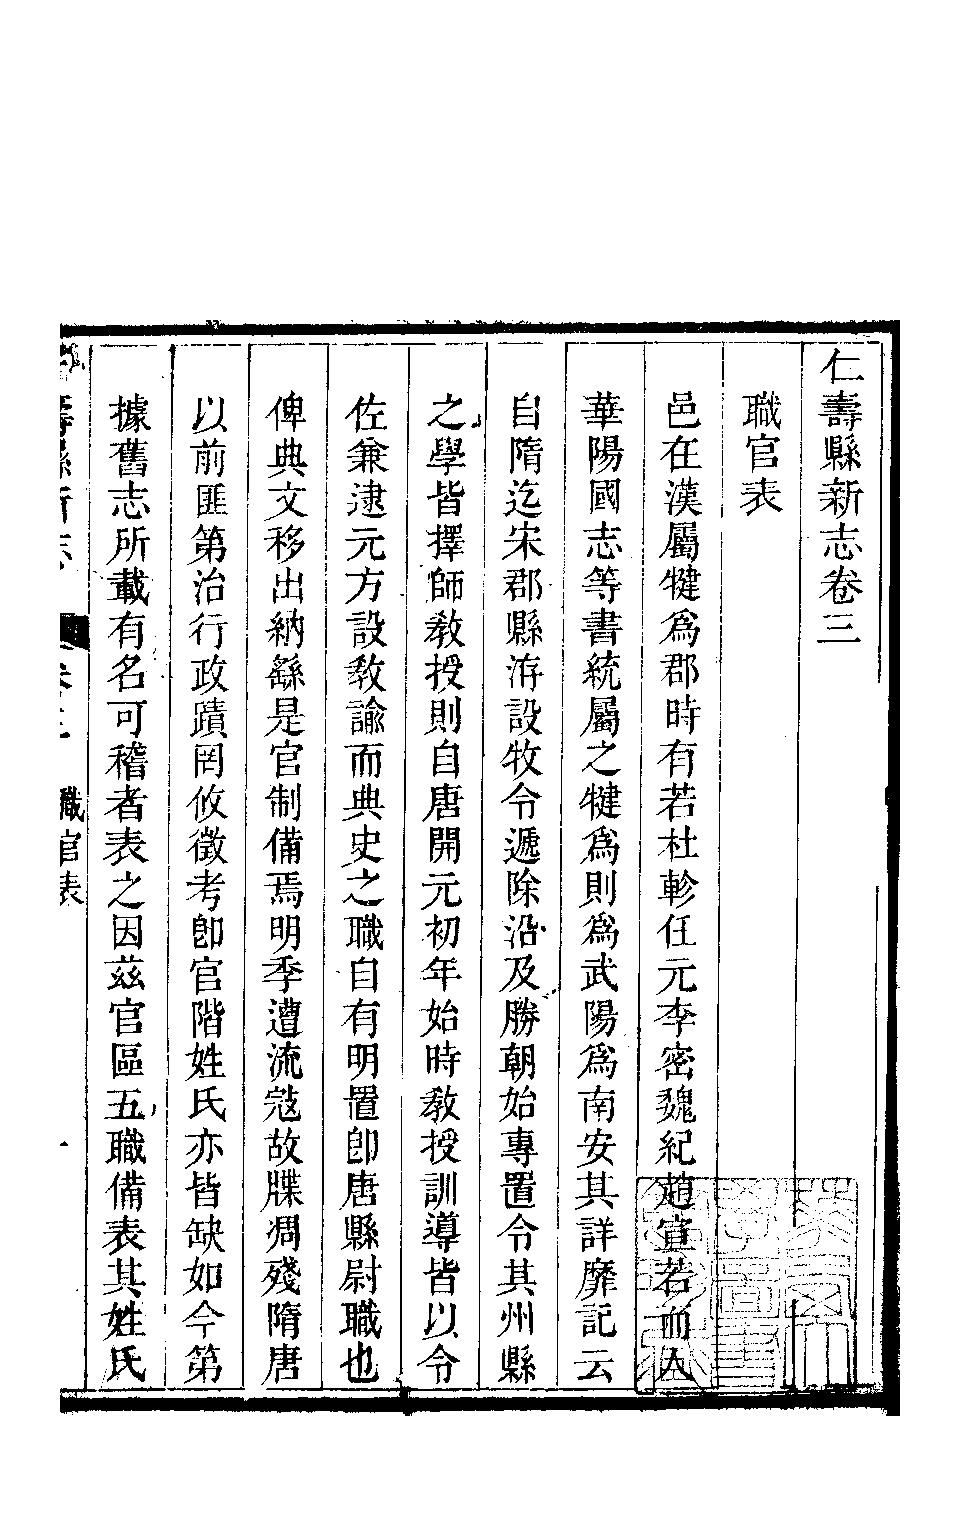 仁壽縣新志卷三
職官表
邑在漢屬犍爲郡時有若杜軫任元李密魏紀趙宣若而人
華陽國志等書統屬之犍爲則爲武陽爲南安其詳靡記云
自隋迄宋郡縣洊設牧令遞除沿及勝朝始專置令其州縣
之學皆擇師敎授則自唐開元初年始時敎授訓導皆以令
佐兼逮元方設敎諭而典史之職自有明置卽唐縣尉職也
俾典文移出納繇是官制備焉明季遭流宼故牒凋殘隋唐
以前匪第治行政蹟罔攸徵考卽官階姓氏亦皆缺如今第
據舊志所載有名可稽者表之因茲官區五職備表其姓氏
壽縣新志
職官表